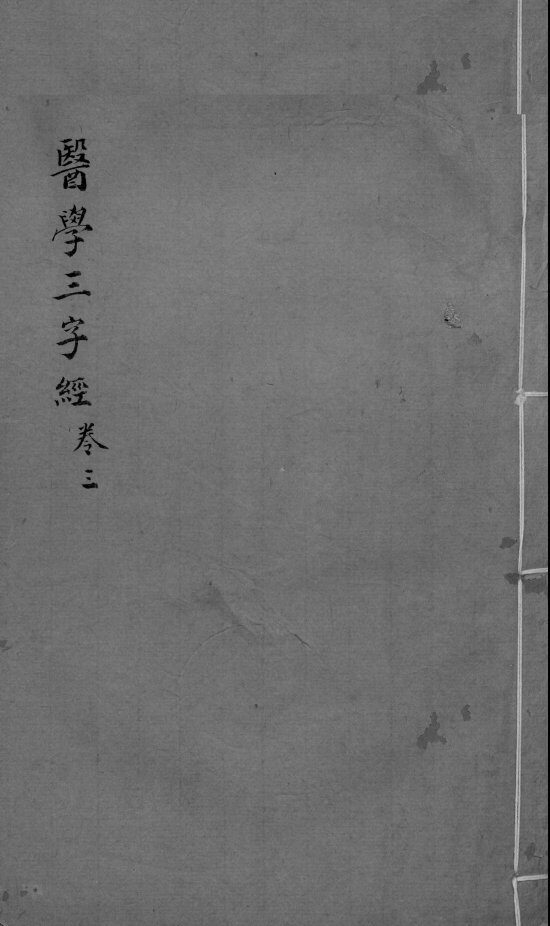 醫學三字經
卷三